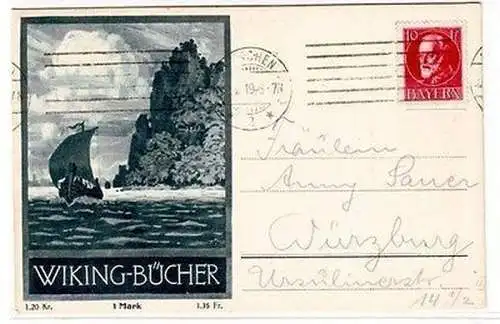 WIKING-BÜCHER
1.20 Kr. 1 Mark 1.35 Fr.
10 Pf
BAYERN
Fräulein
Anny Sauer
Würzburg
Ursulinerstr.
14 1/2